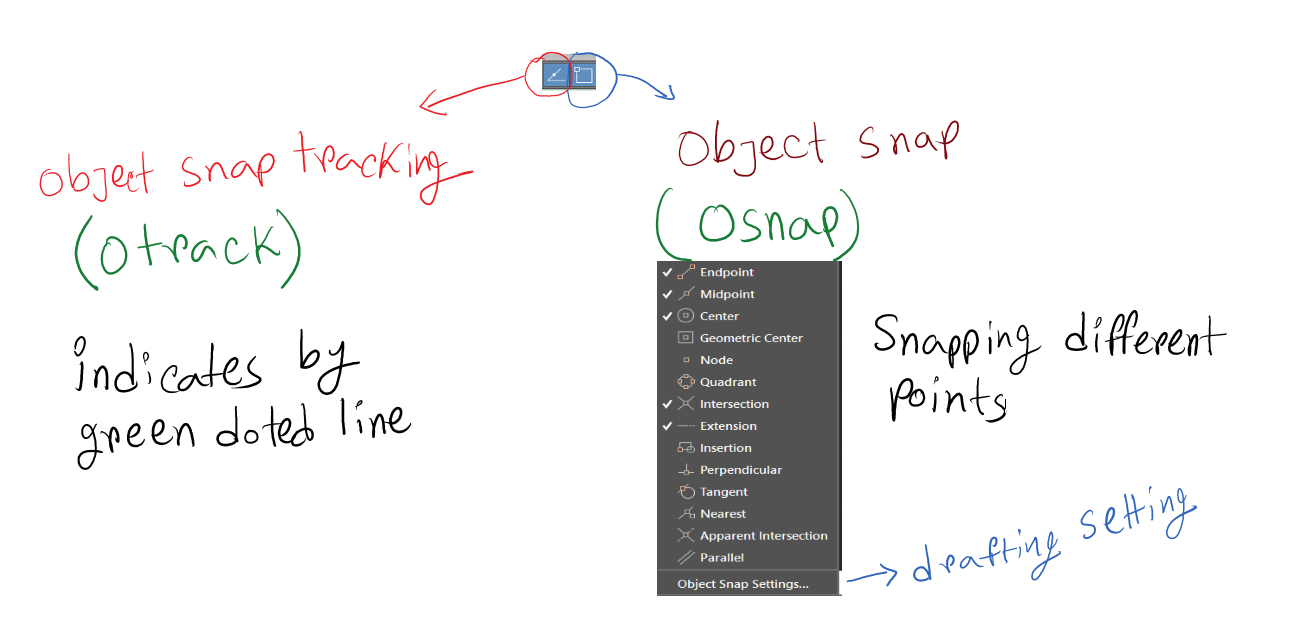 object snap tracking
(otrack)
indicates by
green doted line
Object snap
(Osnap)
Endpoint
Midpoint
Center
Geometric Center
Node
Quadrant
Intersection
Extension
Insertion
Perpendicular
Tangent
Nearest
Apparent Intersection
Parallel
Object Snap Settings...
Snapping different
points
drafting setting